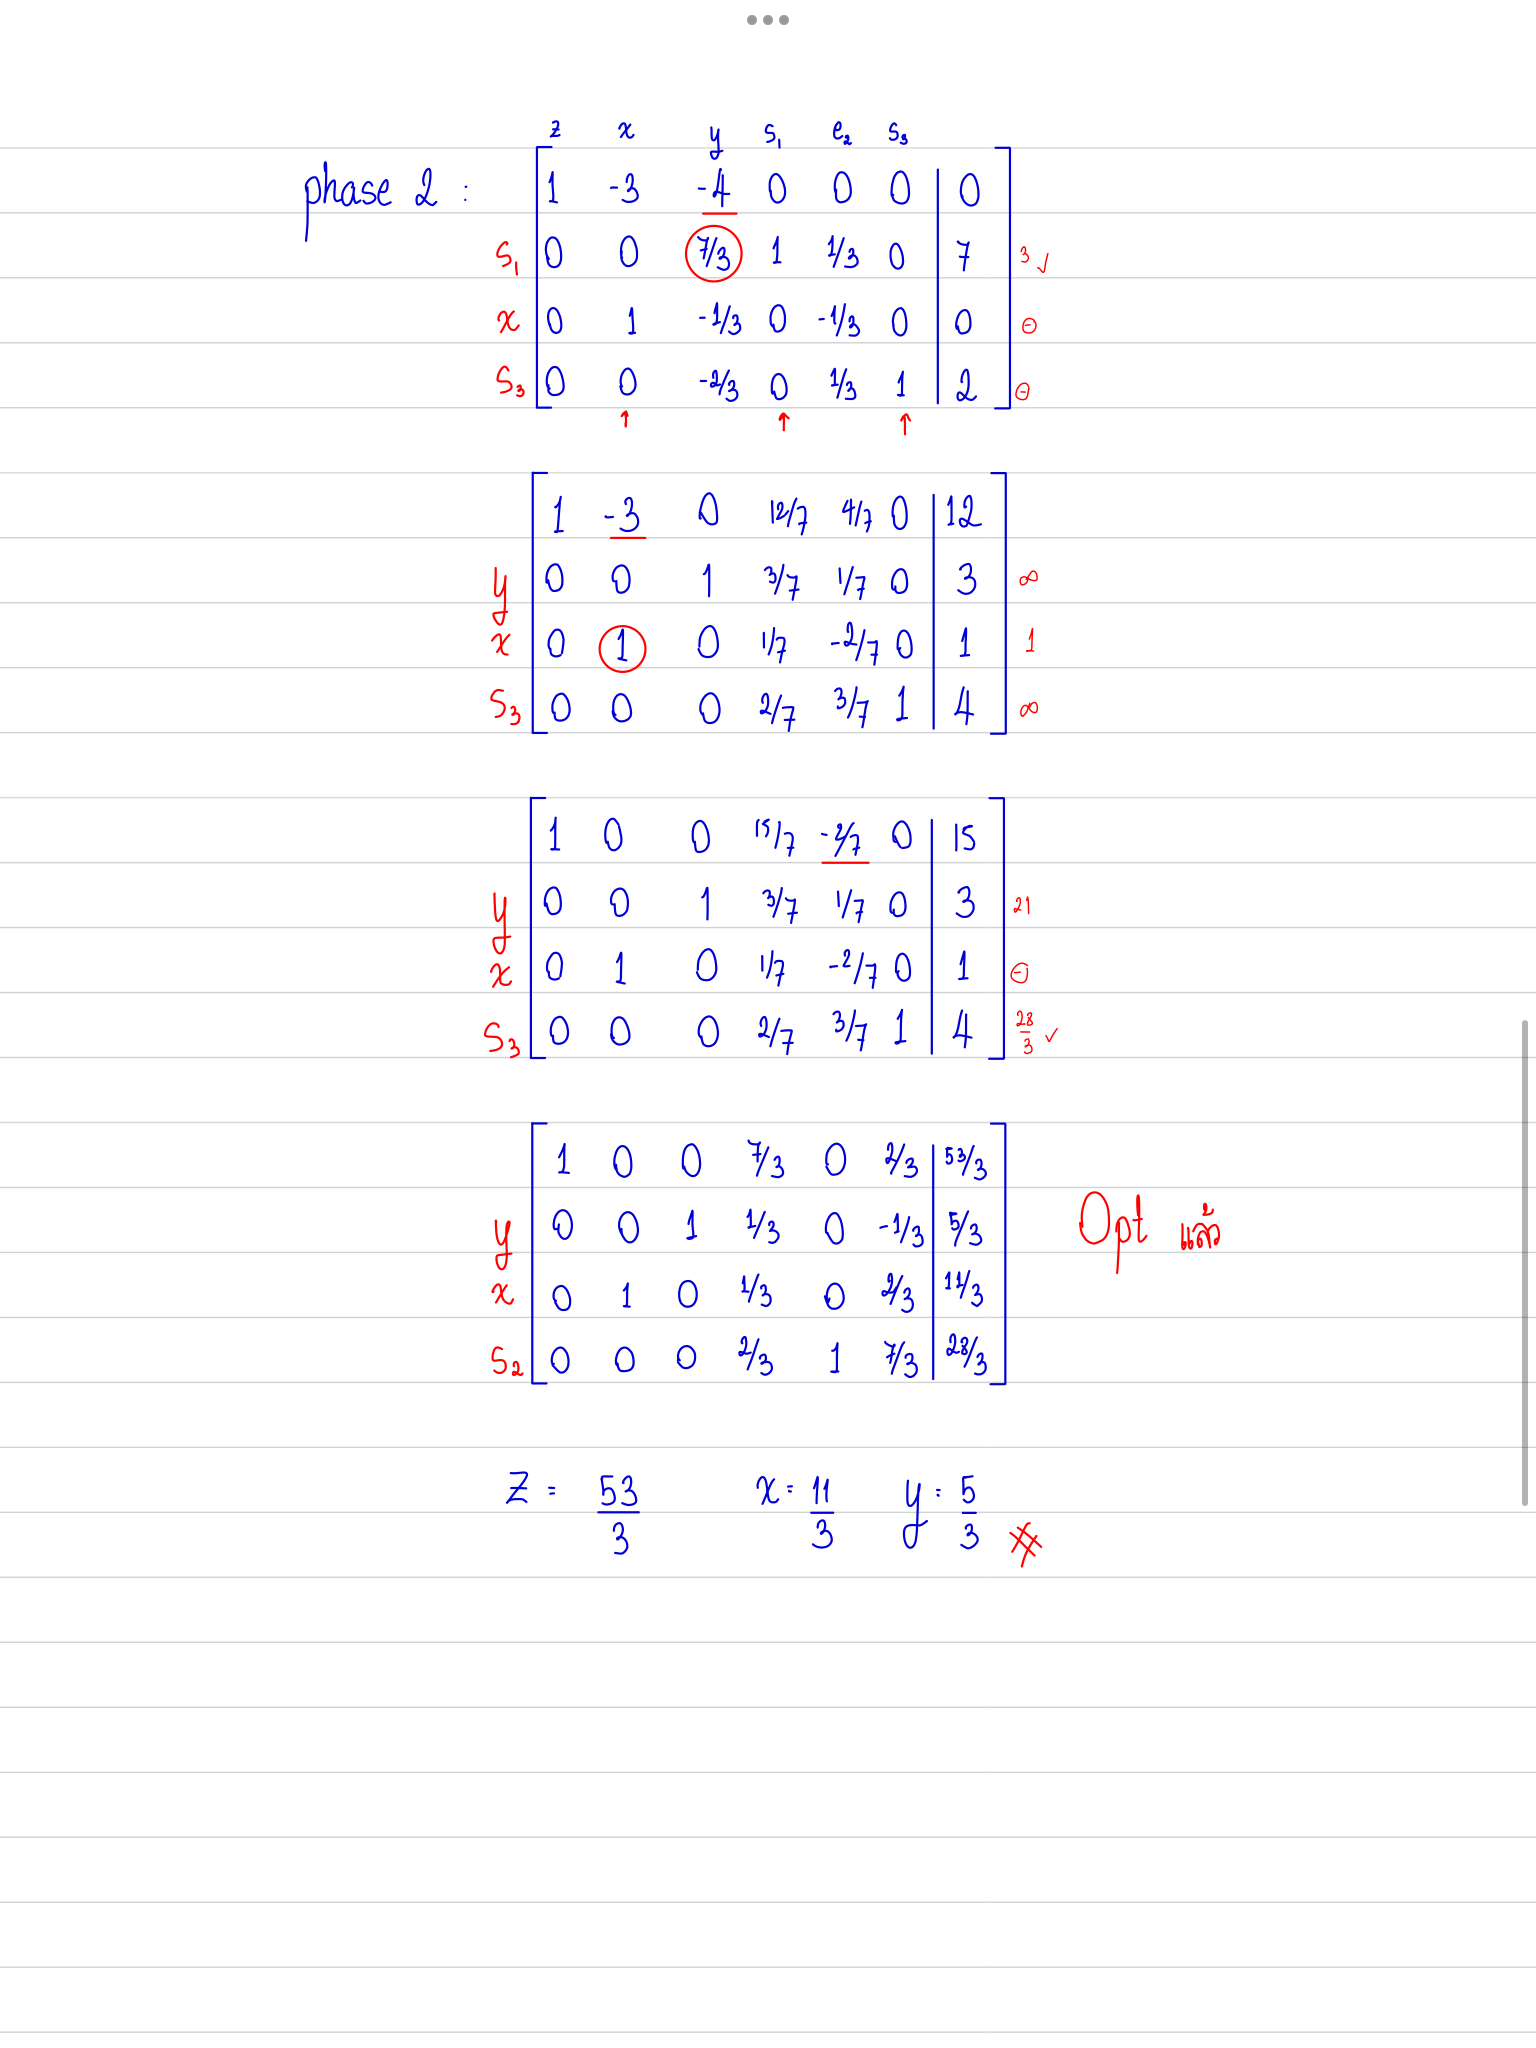 z x y s₁ e₂ s₃
phase 2 : 1 -3 -4 0 0 0 | 0
s₁ 0 0 7/3 1 1/3 0 | 7 3 ✓
x 0 1 -1/3 0 -1/3 0 | 0 ⊖
s₃ 0 0 -2/3 0 1/3 1 | 2 ⊖
↑ ↑ ↑
1 -3 0 12/7 4/7 0 | 12
y 0 0 1 3/7 1/7 0 | 3 ∞
x 0 1 0 1/7 -2/7 0 | 1 1
s₃ 0 0 0 2/7 3/7 1 | 4 ∞
1 0 0 15/7 -2/7 0 | 15
y 0 0 1 3/7 1/7 0 | 3 21
x 0 1 0 1/7 -2/7 0 | 1 ⊖
s₃ 0 0 0 2/7 3/7 1 | 4 28/3 ✓
1 0 0 7/3 0 2/3 | 53/3
y 0 0 1 1/3 0 -1/3 | 5/3 Opt แล้ว
x 0 1 0 1/3 0 2/3 | 11/3
s₂ 0 0 0 2/3 1 7/3 | 28/3
z = 53/3 x = 11/3 y = 5/3 #